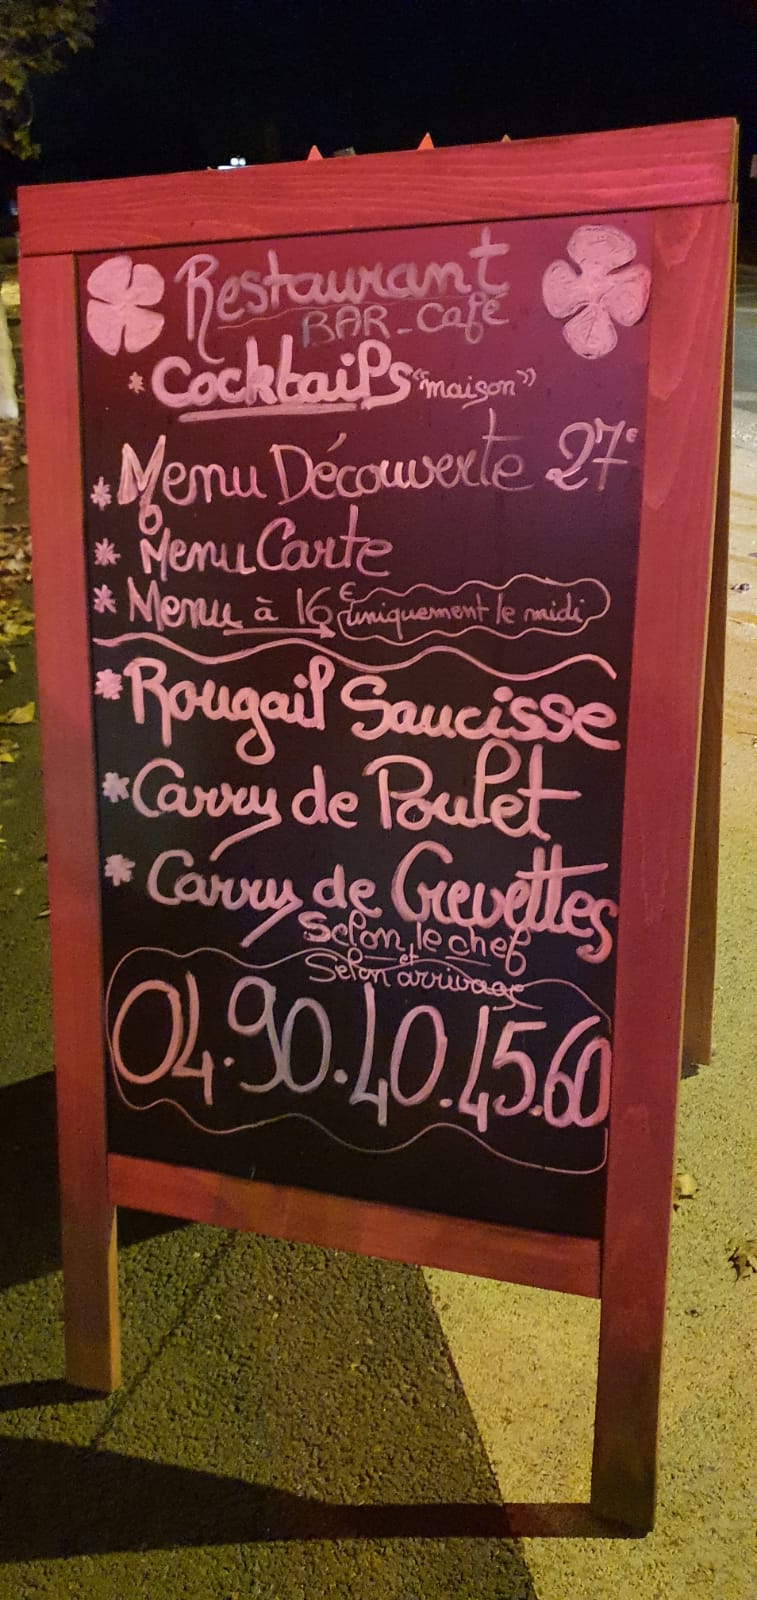 Restaurant
BAR-Café
* Cocktails "maison"
* Menu Découverte 27€
* Menu Carte
* Menu à 16€ uniquement le midi
* Rougail Saucisse
* Carry de Poulet
* Carry de Crevettes
Selon le chef
et
Selon arrivage
04.90.40.45.60